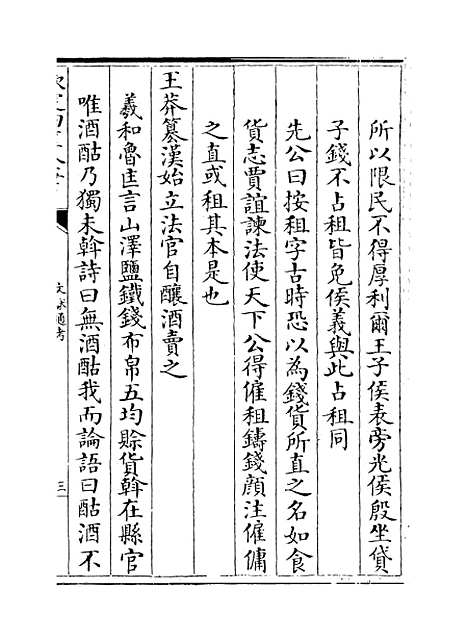 所以限民不得厚利爾王子侯表旁光侯殷坐貸
子錢不占租皆免侯義與此占租同
先公曰按租字古時恐以為錢貨所直之名如食
貨志賈誼諫法使天下公得僱租鑄錢顔注僱傭
之直或租其本是也
王莽簒漢始立法官自釀酒賣之
羲和魯匡言山澤鹽鐵錢布帛五均賒貨斡在縣官
唯酒酤乃獨未斡詩曰無酒酤我而論語曰酤酒不
文獻通考
三